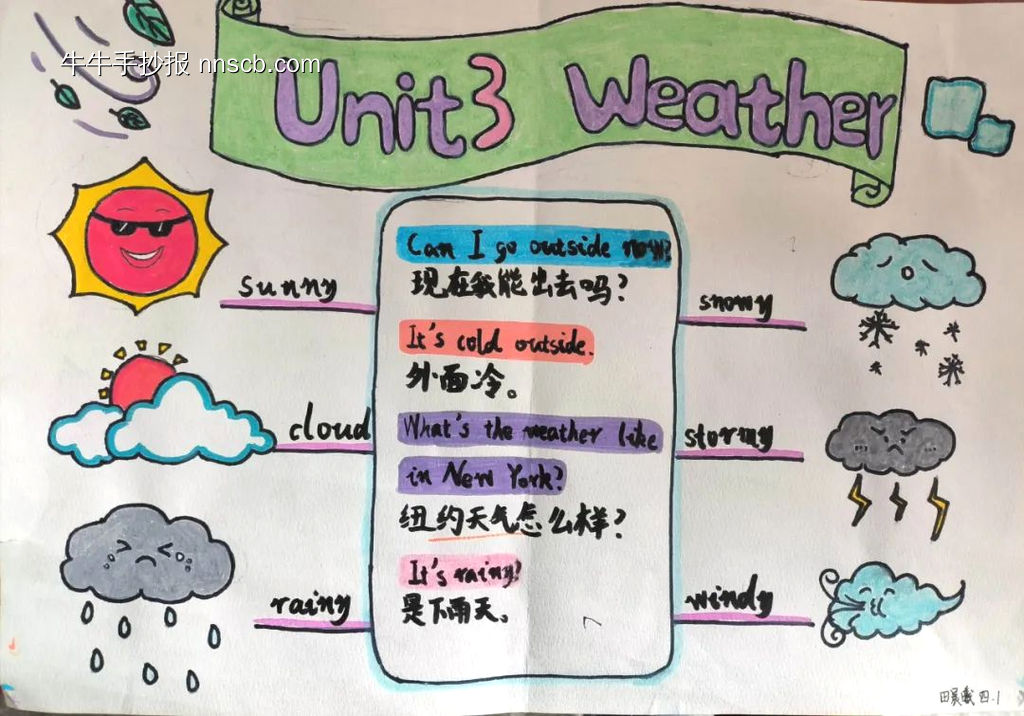 牛牛手抄报 nnscb.com
Unit3 Weather
Can I go outside now?
现在我能出去吗?
sunny
snowy
It's cold outside.
外面冷。
cloud
What's the weather like
stormy
in New York?
纽约天气怎么样?
It's rainy!
是下雨天。
rainy
windy
四.1